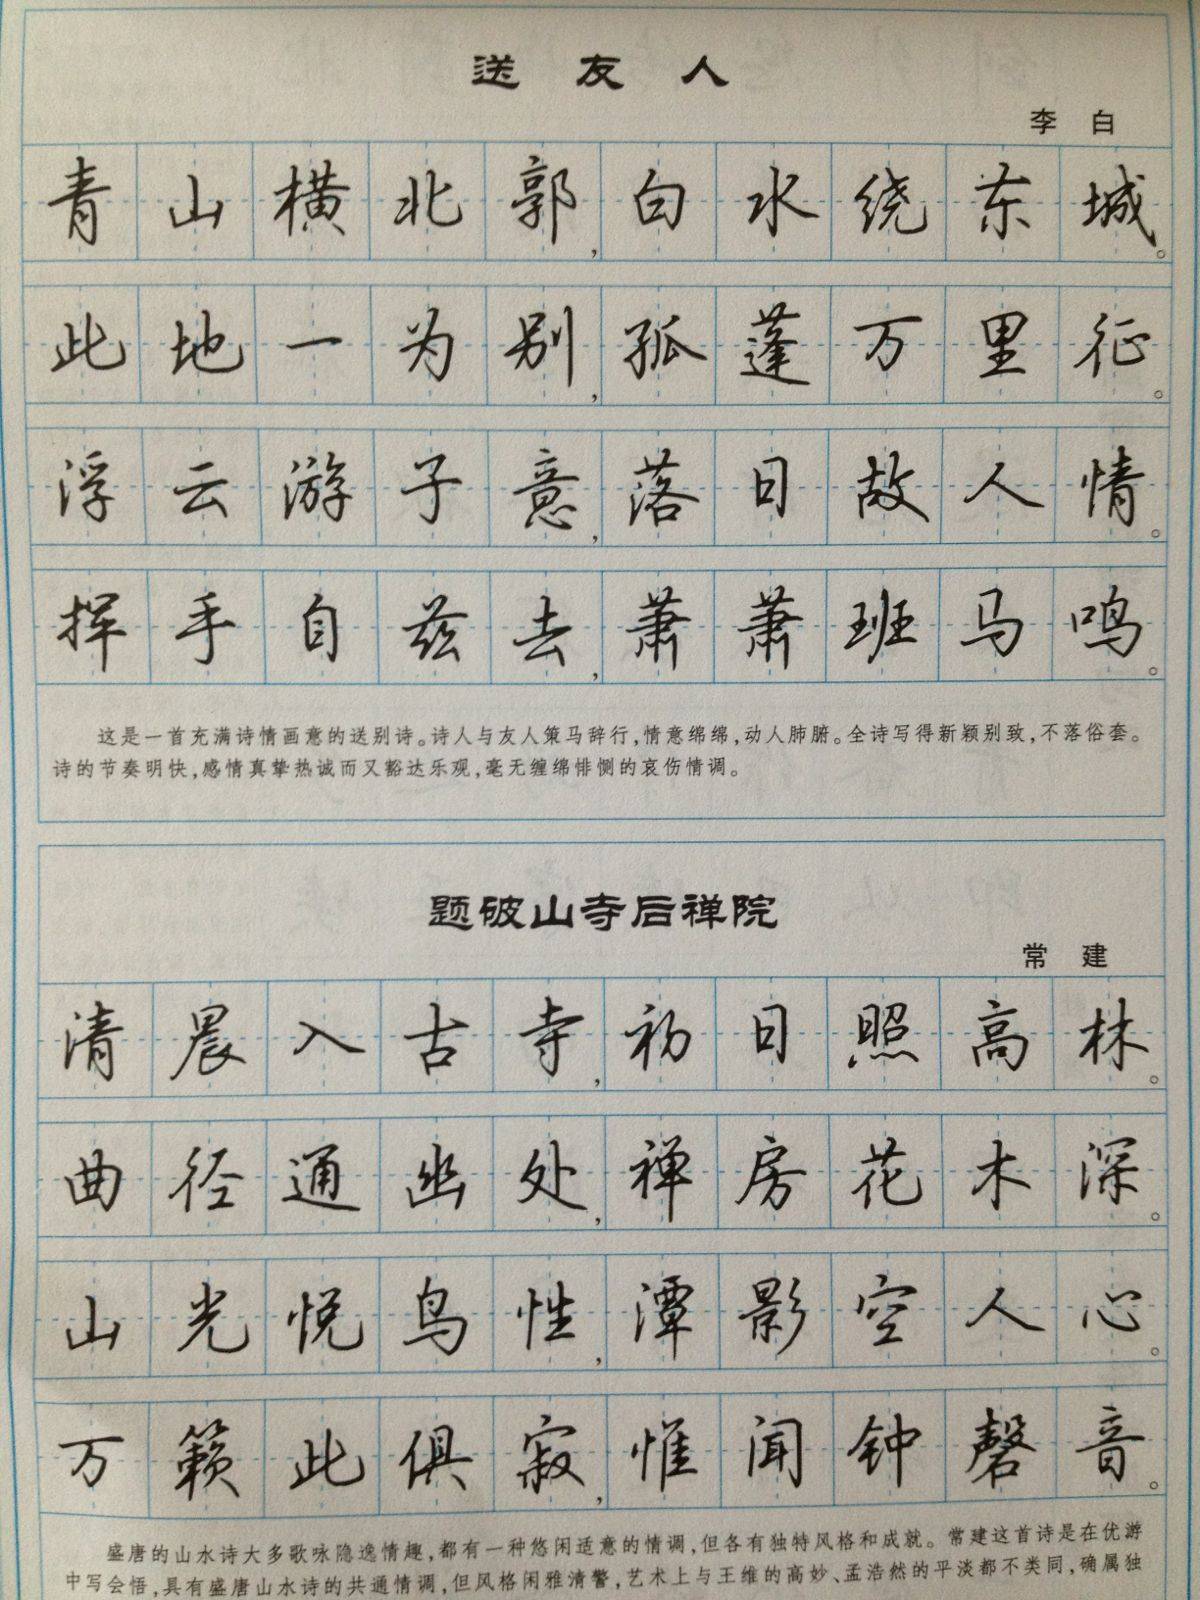 送友人
李白
青山横北郭,白水绕东城。
此地一为别,孤蓬万里征。
浮云游子意,落日故人情。
挥手自兹去,萧萧班马鸣。
这是一首充满诗情画意的送别诗。诗人与友人策马辞行,情意绵绵,动人肺腑。全诗写得新颖别致,不落俗套。
诗的节奏明快,感情真挚热诚而又豁达乐观,毫无缠绵悱恻的哀伤情调。
题破山寺后禅院
常建
清晨入古寺,初日照高林。
曲径通幽处,禅房花木深。
山光悦鸟性,潭影空人心。
万籁此俱寂,惟闻钟磬音。
盛唐的山水诗大多歌咏隐逸情趣,都有一种悠闲适意的情调,但各有独特风格和成就。常建这首诗是在优游
中写会悟,具有盛唐山水诗的共通情调,但风格闲雅清警,艺术上与王维的高妙、孟浩然的平淡都不类同,确属独